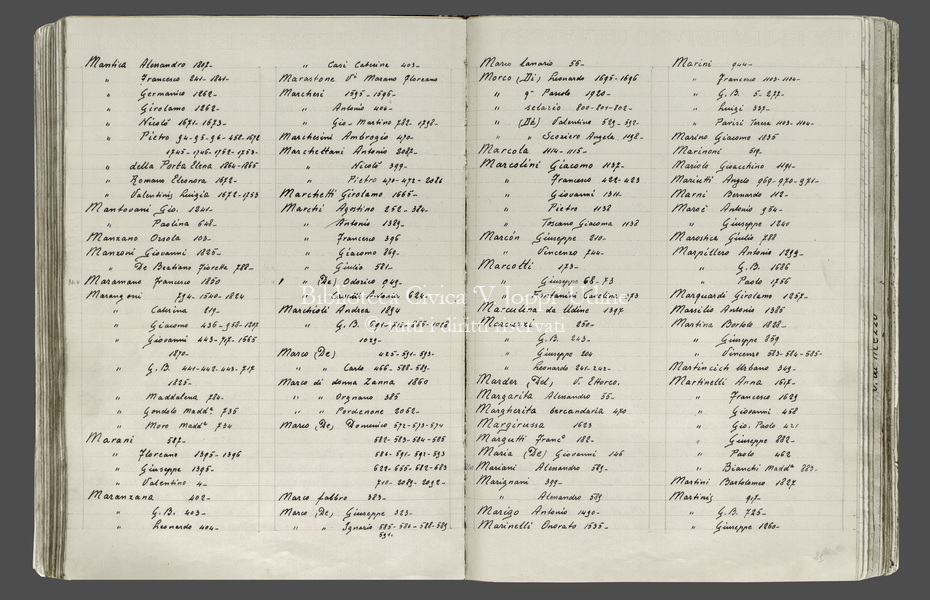 Mantica Alessandro 1817-
" Francesco 241-1841-
" Germanico 1262-
" Girolamo 1262-
" Nicolò 1671-1673-
" Pietro 94-95-96-458-1672
1745-1746-1752-1753-
" della Porta Elena 1864-1865
" Romano Eleonora 1672-
" Valentinis Luigia 1672-1753
Mantovani Gio. 1241-
" Paolina 648-
Manzano Orsola 103-
Manzoni Giovanni 1825-
" De Bertiano Fioretta 788-
Maramano Francesco 1850
Marangoni 794-1540-1824
" Caterina 219-
" Giacomo 436-958-1207
" Giovanni 443-717-1565
1870-
" G.B. 441-442-443-717
1825-
" Maddalena 724-
" Gondolo Madd.ª 735
" Moro Madd.ª 734
Marani 587-
" Floreano 1395-1396
" Giuseppe 1395-
" Valentino 4-
Maranzana 402-
" G.B. 403-
" Leonardo 404-
" Casi Caterina 403-
Marastone Vi Morano Floreano
Marchesi 1595-1596-
" Antonio 404-
" Gio-Martino 782-1798-
Marchesini Ambrogio 470-
Marchettani Antonio 2087-
" Nicolò 399-
" Pietro 470-472-2086
Marchetti Girolamo 1665-
Marchi Agostino 252-384-
" Antonio 1389-
" Francesco 396
" Giacomo 269-
" Giulio 581-
" (De) Odorico 949-
" Antonio 624
Marchioli Andrea 1894
" G.B.
1029-
Marco (De) 425-591-593-
" " Carlo 466-588-589-
Marco di donna Zanna 1860
" " Orgnano 385
" " Pordenone 2062-
Marco (De) Domenico 572-573-574
582-583-584-585
586-591-592-593
629-655-682-683
710-2089-2092-
Marco fabbro 383-
Marco (De) Giuseppe 323-
" " Ignazio 585-586-588-589
591-
Marco lanario 56-
Marco (Di) Leonardo 1695-1696
" q.m Paolo 1920-
" selario 800-801-802-
" (Di) Valentino 529-592-
" " Scoziero Angela 1198-
Marcola 1114-1115-
Marcolini Giacomo 1137-
" Francesco 422-423
" Giovanni 1311-
" Pietro 1138
" Toscano Giacoma 1138
Marcòn Giuseppe 210-
" Vincenzo 744-
Marcotti 173-
" Giuseppe 68-73
" Fontanini 73
Marcutena da Udine 1397
Marcuzzi 250-
" G.B. 243-
" Giuseppe 204
" Leonardo 241-242-
Marder (Del) V. Ettorco.
Margarita Alessandro 55-
Margherita bercandaria 470-
Margirussa 1623
Margutti Franc.º 182-
Maria (De) Giovanni 146
Mariani Alessandro 589-
Marignani 399-
" Alessandro 589
Marigo Antonio 1490-
Marinelli Onorato 1535-
Marini 944-
" Francesco 1103-1104-
" G.B. 5-277-
" Luigi 337-
" Parisi Teresa 1103-1104-
Marino Giacomo 1835
Marinoni 519-
Mariolo Gioacchino 1191-
Mariutti Angelo 969-970-971-
Marni Bernardo 112-
Maroè Antonio 954-
" Giuseppe 1240
Marostica Giulio 788
Marpillero Antonio 1299-
" G.B. 1686
" Paolo 1756
Marquardi Girolamo 1257-
Marsilio Antonio 1385
Martina Bortolo 1828-
" Giuseppe 859
" Vincenzo 583-584-585-
Martincich Urbano 349-
Martinelli Anna 1617-
" Francesco 1629
" Giovanni 458
" Gio. Paolo 421
" Giuseppe 882-
" Paolo 462
" Bianchi Madd.ª 883-
Martini Bartolomeo 1827
Martinis 917-
" G.B. 725-
" Giuseppe 1260-
Biblioteca Civica V. Joppi Udine
© tutti i diritti riservati